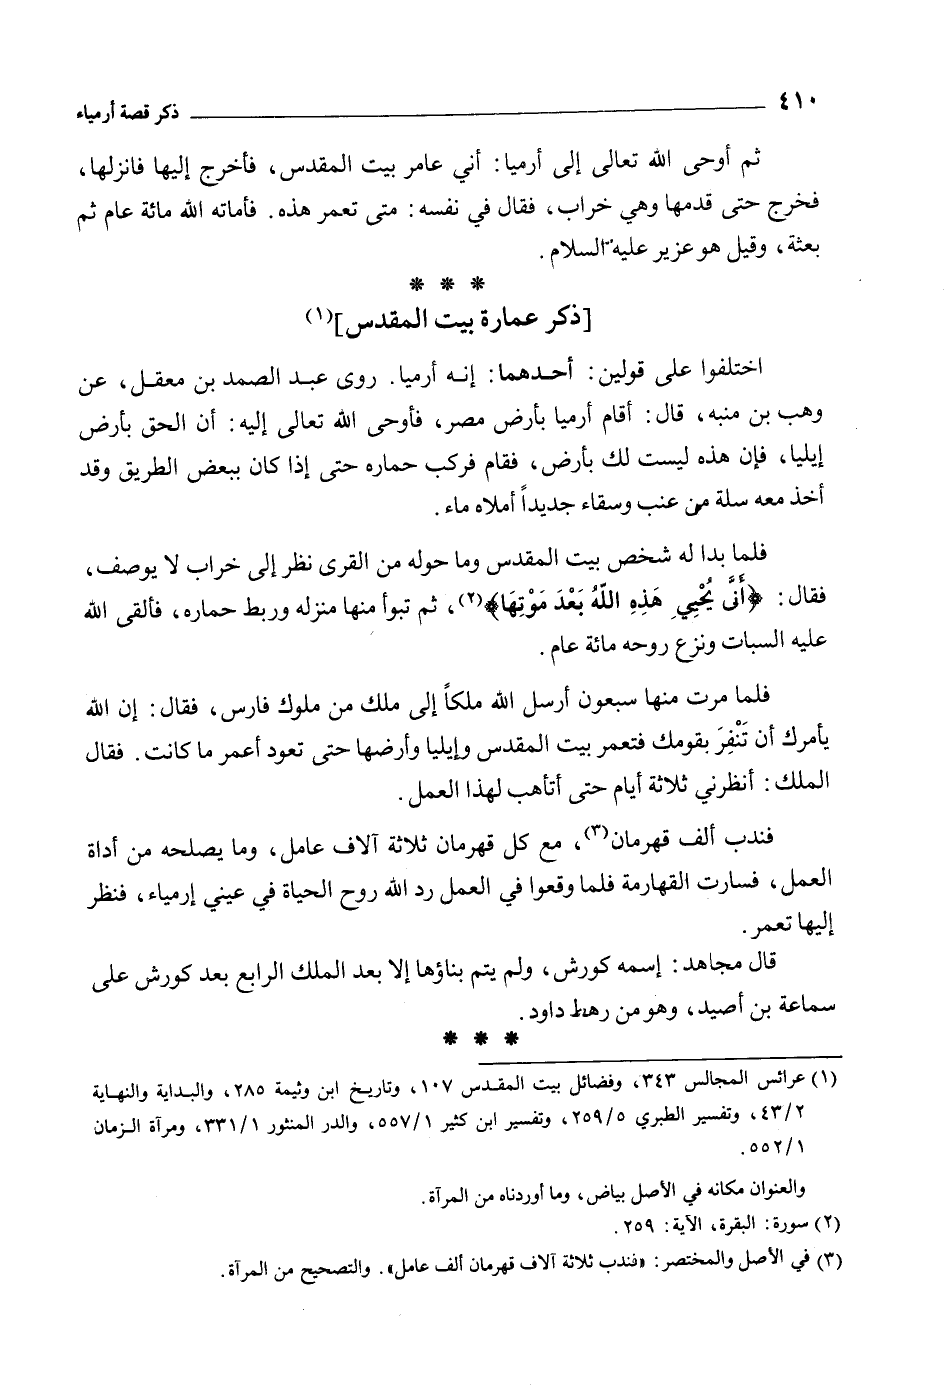 ٤١٠ ذكر قصة أرمياء
ثم أوحى الله تعالى إلى أرميا: أني عامر بيت المقدس، فأخرج إليها فانزلها،
فخرج حتى قدمها وهي خراب، فقال في نفسه: متى تعمر هذه. فأماته الله مائة عام ثم
بعثة، وقيل هو عزير عليه السلام.
* * *
[ذكر عمارة بيت المقدس](١)
اختلفوا على قولين: أحدهما: إنه أرميا. روى عبد الصمد بن معقل، عن
وهب بن منبه، قال: أقام أرميا بأرض مصر، فأوحى الله تعالى إليه: أن الحق بأرض
إيليا، فإن هذه ليست لك بأرض، فقام فركب حماره حتى إذا كان ببعض الطريق وقد
أخذ معه سلة من عنب وسقاء جديداً أملاه ماء.
فلما بدا له شخص بيت المقدس وما حوله من القرى نظر إلى خراب لا يوصف،
فقال: ﴿أَنَّى يُحْيِي هَذِهِ اللَّهُ بَعْدَ مَوْتِهَا﴾(٢)، ثم تبوأ منها منزله وربط حماره، فألقى الله
عليه السبات ونزع روحه مائة عام.
فلما مرت منها سبعون أرسل الله ملكاً إلى ملك من ملوك فارس، فقال: إن الله
يأمرك أن تَنْفِرَ بقومك فتعمر بيت المقدس وإيليا وأرضها حتى تعود أعمر ما كانت. فقال
الملك: أنظرني ثلاثة أيام حتى أتأهب لهذا العمل.
فندب ألف قهرمان(٣)، مع كل قهرمان ثلاثة آلاف عامل، وما يصلحه من أداة
العمل، فسارت القهارمة فلما وقعوا في العمل رد الله روح الحياة في عيني إرمياء، فنظر
إليها تعمر.
قال مجاهد: إسمه كورش، ولم يتم بناؤها إلا بعد الملك الرابع بعد كورش على
سماعة بن أصيد، وهو من رهط داود.
* * *
(١) عرائس المجالس ٣٤٣، وفضائل بيت المقدس ١٠٧، وتاريخ ابن وثيمة ٢٨٥، والبداية والنهاية
٤٣/٢، وتفسير الطبري ٢٥٩/٥، وتفسير ابن كثير ٥٥٧/١، والدر المنثور ٣٣١/١، ومرآة الزمان
٥٥٢/١.
والعنوان مكانه في الأصل بياض، وما أوردناه من المرآة.
(٢) سورة: البقرة، الآية: ٢٥٩.
(٣) في الأصل والمختصر: «فندب ثلاثة آلاف قهرمان ألف عامل». والتصحيح من المرآة.